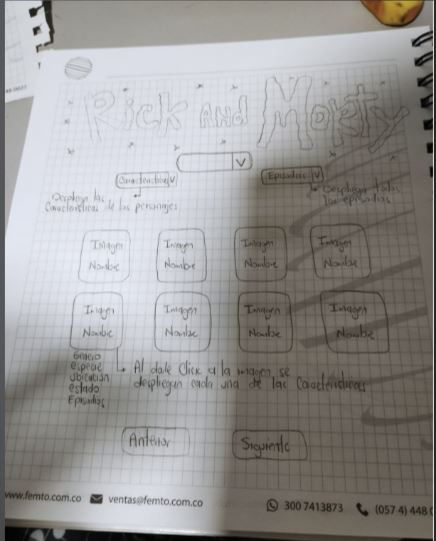 Rick AND Morty
V
Características V
Episodios V
Desplega las
Características de los personajes
Desplega todos
los episodios
Imagen Imagen Imagen Imagen
Nombre Nombre Nombre Nombre
Imagen Imagen Imagen Imagen
Nombre Nombre Nombre Nombre
Genero
especie
ubicación
estado
Episodios
Al darle Click a la imagen se
despliegan cada una de las Características
Anterior
Siguiente
www.femto.com.co ventas@femto.com.co 300 7413873 (057 4) 448